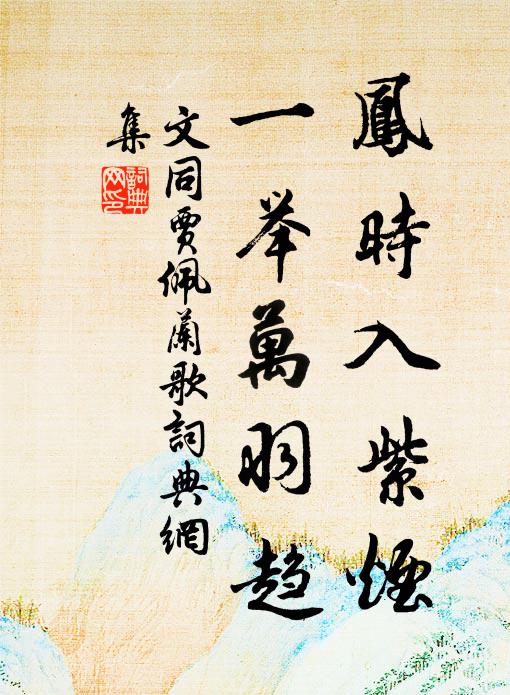 鳳時入紫煙
一举萬羽趋
文同賈佩蘭歌詞典網
集
詞典網印